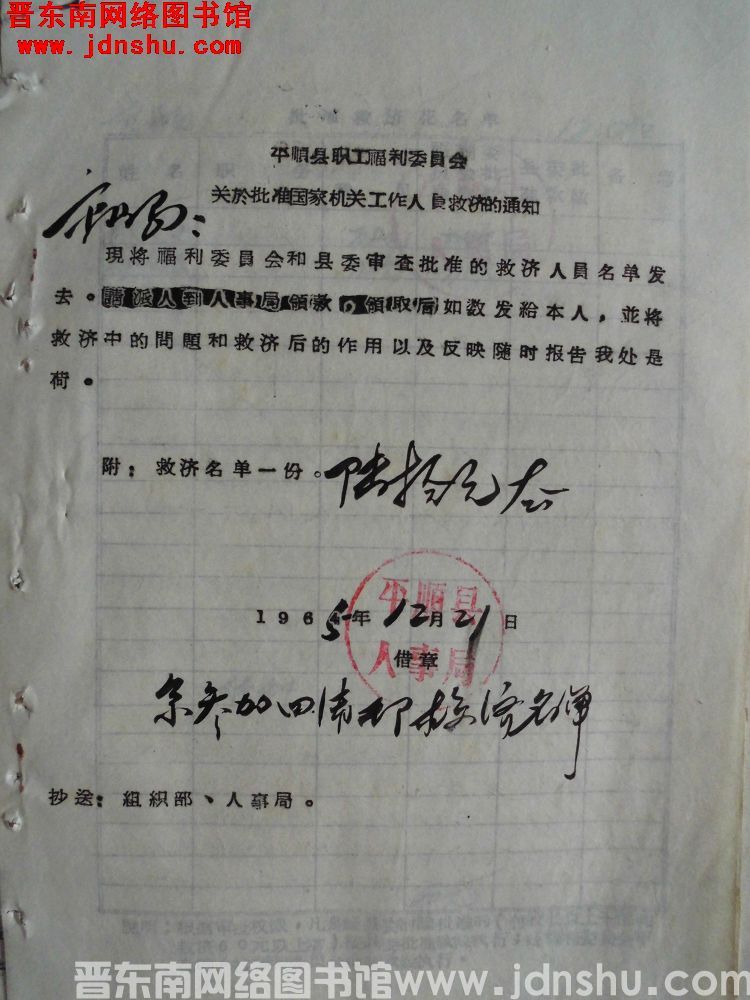 晋东南网络图书馆
www.jdnshu.com
平順县职工福利委員会
关於批准国家机关工作人員救济的通知
現将福利委員会和县委审查批准的救济人員名单发
去。請派人到人事局領款。領取后如数发給本人，並将
救济中的問題和救济后的作用以及反映随时报告我处是
荷。
附：救济名单一份。陆拾元
1965年12月21日
平順县
人事局
借章
参加四清 救济名单
抄送：組織部、人事局。
晋东南网络图书馆www.jdnshu.com